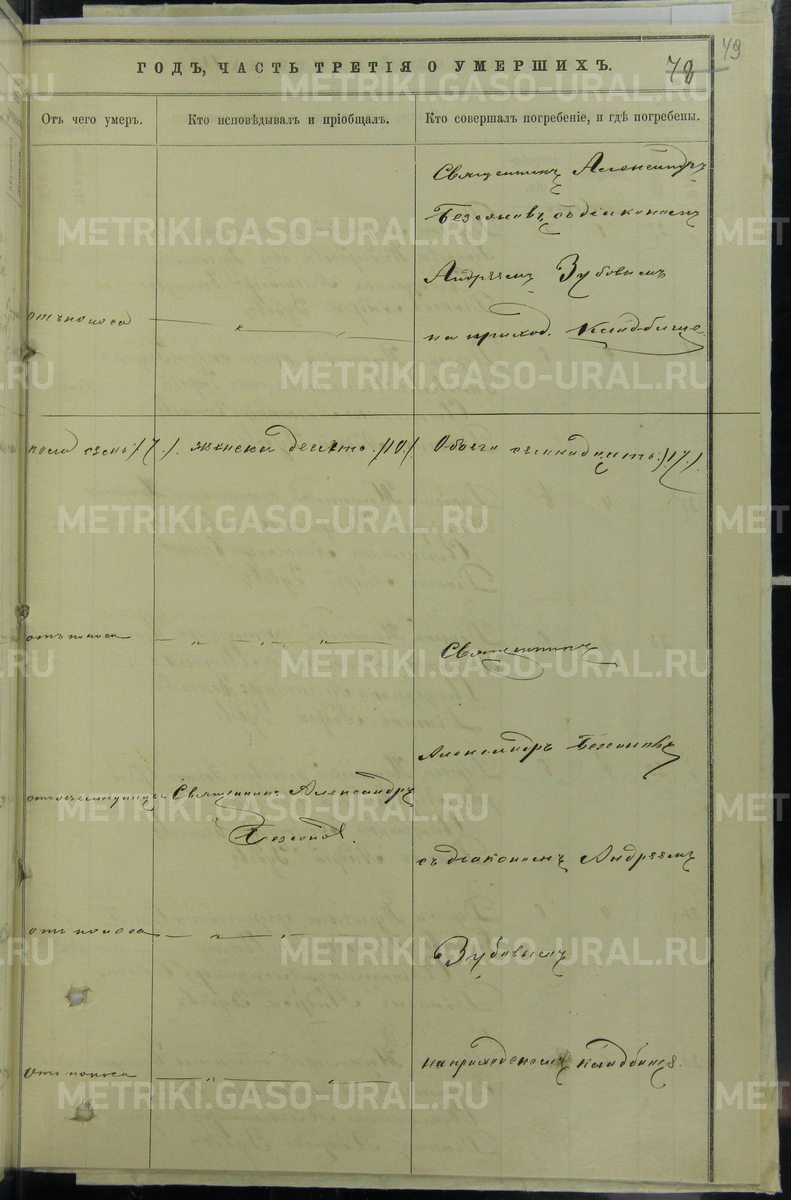 49
ГОДЪ, ЧАСТЬ ТРЕТІЯ О УМЕРШИХЪ.
78
Отъ чего умеръ.
Кто исповѣдывалъ и пріобщалъ.
Кто совершалъ погребеніе, и гдѣ погребены.
Священникъ Александръ
съ діакономъ
Андреемъ Зубовымъ
отъ поноса
на приход. Кладбище
пола семь /7./. женска десять /10./
Обоего семнадцать /17./
отъ поноса
Священникъ
Александръ
Священникъ Александръ
съ діакономъ Андреемъ
отъ поноса
Зубовымъ
на приходскомъ кладбищѣ.
отъ поноса
METRIKI.GASO-URAL.RU